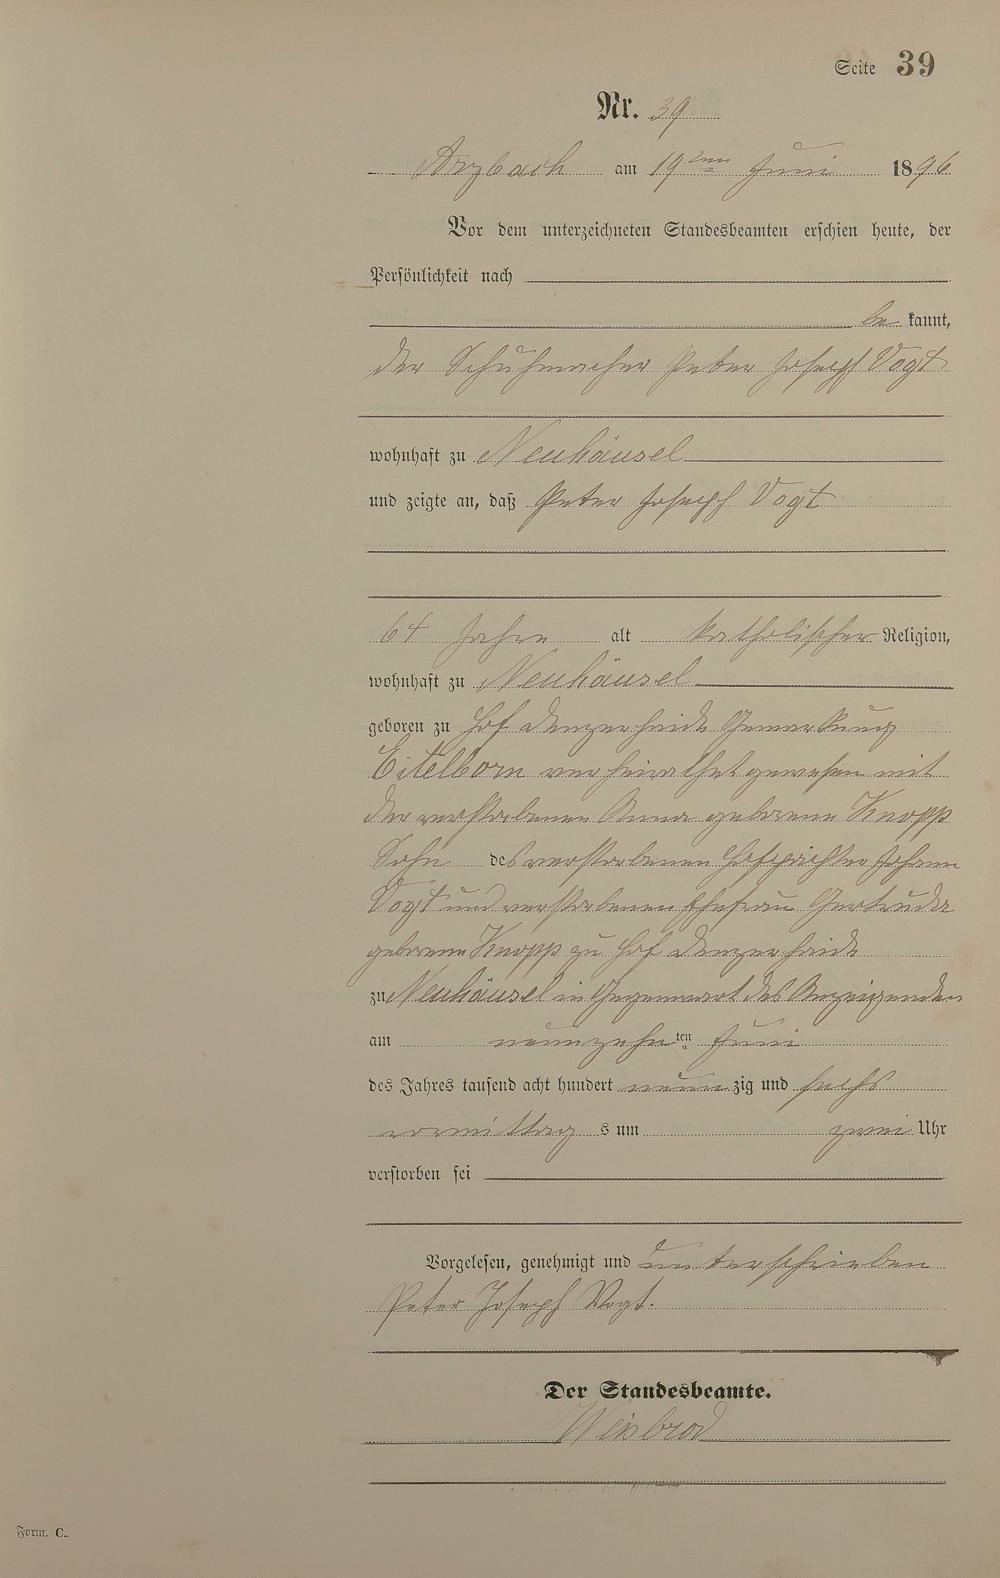 Seite 39
Nr. 39
Arzbach am 19ten Juni 1896
Vor dem unterzeichneten Standesbeamten erschien heute, der
Persönlichkeit nach
be kannt,
der Schuhmacher Peter Joseph Vogt
wohnhaft zu Neuhäusel
und zeigte an, daß Peter Joseph Vogt
64 Jahre alt katholischer Religion,
wohnhaft zu Neuhäusel
geboren zu Hof Denzerheide Gemarkung
Eitelborn verheirathet gewesen mit
der verstorbenen Anna geborene Knopp
Sohn des verstorbenen Hofpächter Johann
Vogt und verstorbenen Ehefrau Gertrude
geborene Knopp zu Hof Denzerheide
zu Neuhäusel in Gegenwart des Anzeigenden
am neunzehnten Juni
des Jahres tausend acht hundert neunzig und sechs
vormittags um zwei Uhr
verstorben sei
Vorgelesen, genehmigt und unterschrieben
Peter Joseph Vogt.
Der Standesbeamte.
Weisbrod
Form. C.